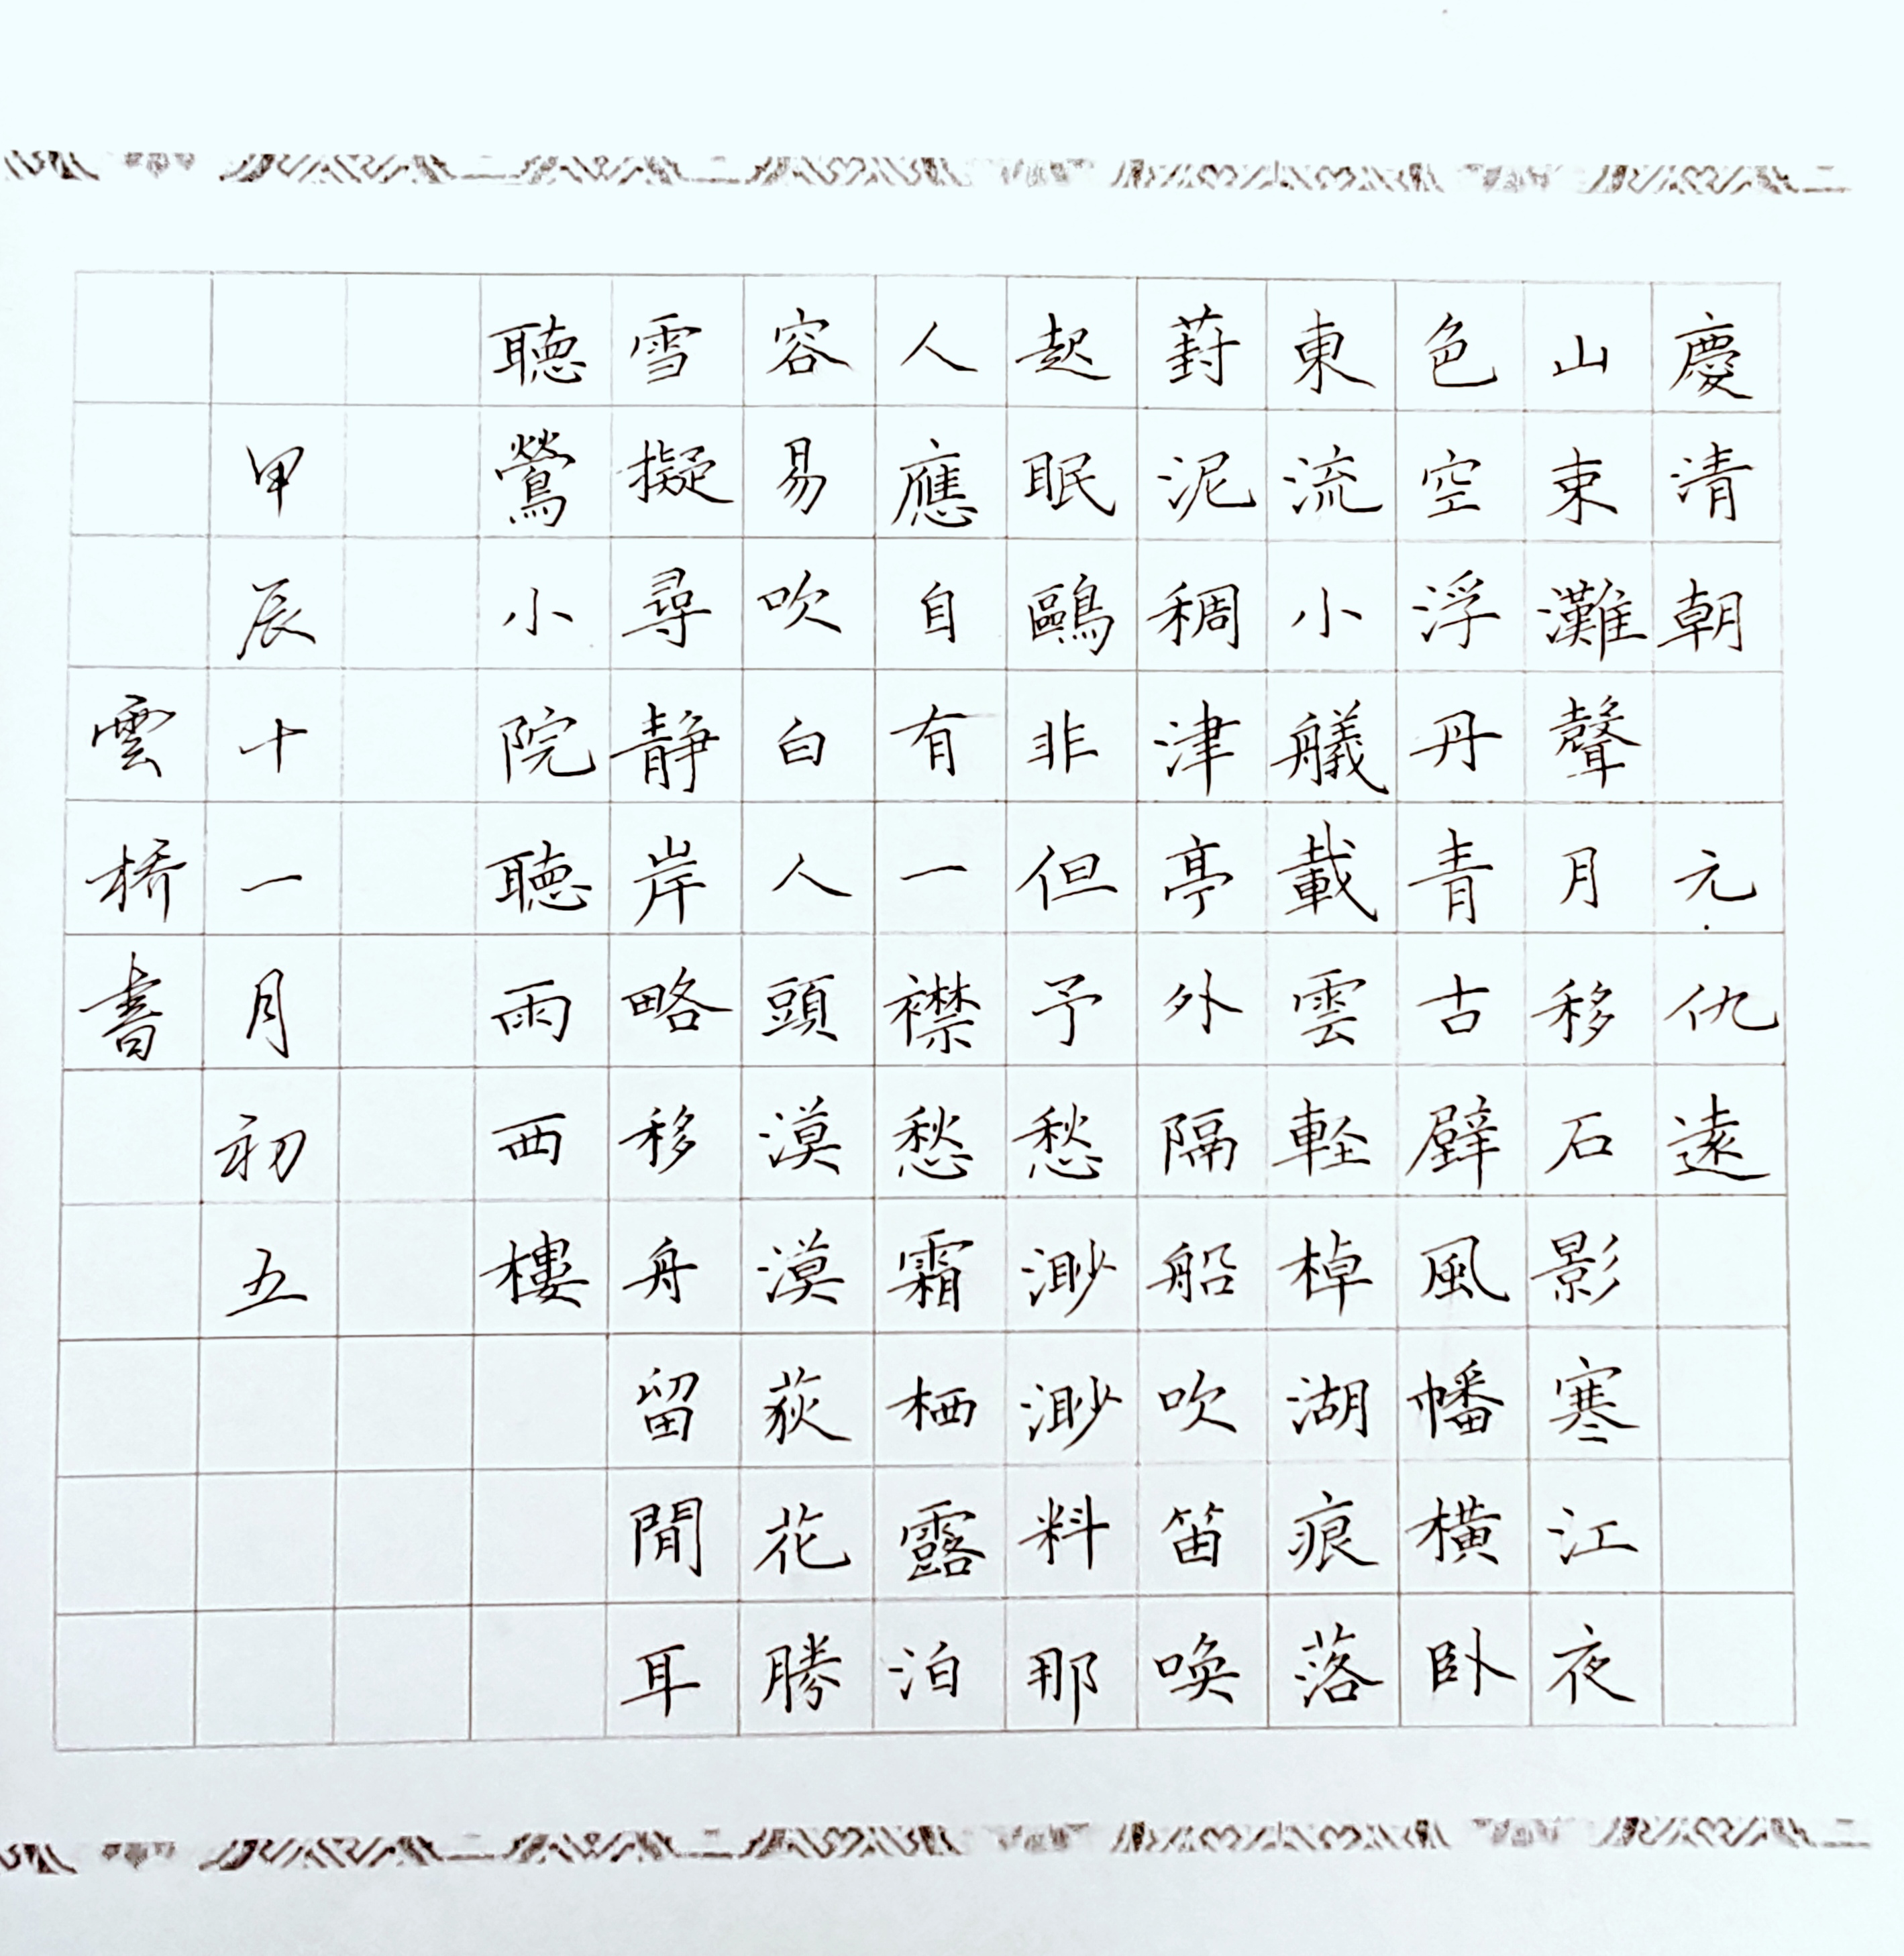 慶清朝 元·仇遠
山束灘聲月移石影寒江夜
色空浮丹青古壁風幡橫臥
東流小艤載雲輕棹湖痕落
葑泥稠津亭外隔船吹笛喚
起眠鷗非但予愁渺渺料那
人應自有一襟愁霜栖露泊
容易吹白人頭漠漠荻花勝
雪擬尋靜岸略移舟留閒耳
聽鶯小院聽雨西樓
甲辰十一月初五
雲橋書